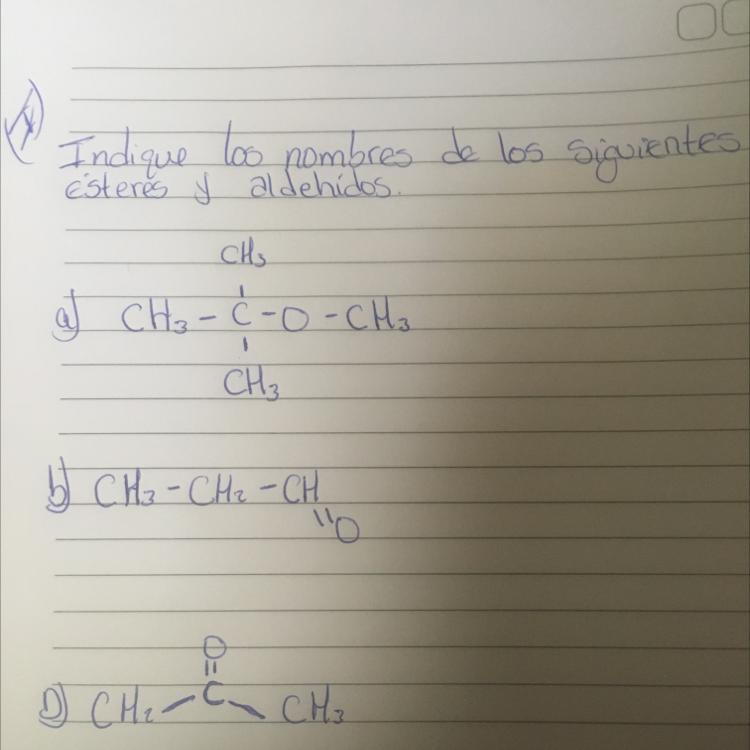 Indique los nombres de los siguientes
ésteres y aldehidos.
CH₃
a) CH₃ - C - O - CH₃
CH₃
b) CH₃ - CH₂ - CH
O
O
D) CH₂ - C - CH₃